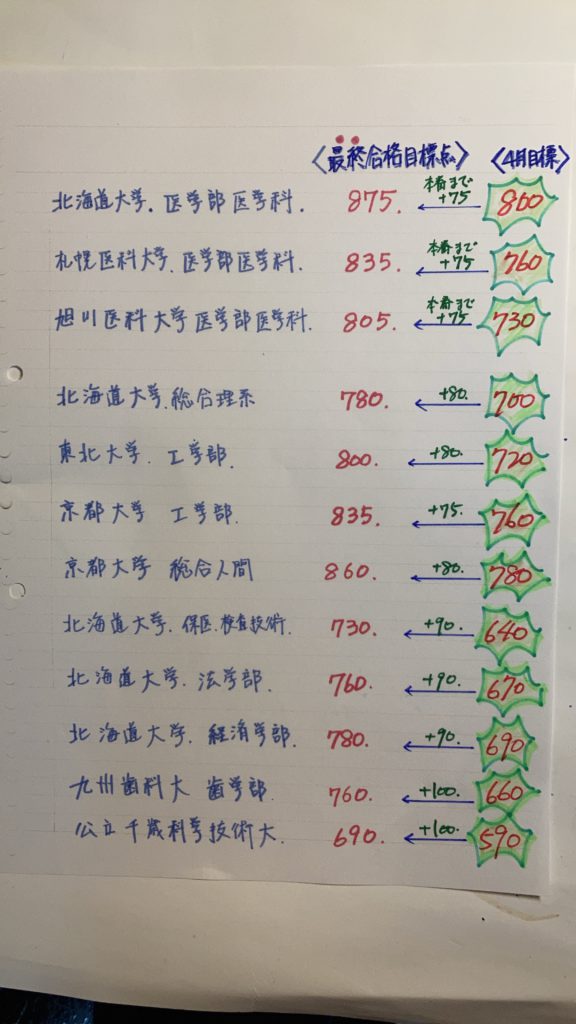 〈最終合格目標点〉 〈4月目標〉
北海道大学. 医学部医学科. 875. 本番まで +75 800
札幌医科大学. 医学部医学科. 835. 本番まで +75 760
旭川医科大学医学部医学科. 805. 本番まで +75 730
北海道大学. 総合理系 780. +80. 700
東北大学. 工学部. 800. +80. 720
京都大学 工学部. 835. +75. 760
京都大学 総合人間 860. +80. 780
北海道大学. 保医. 検査技術. 730. +90. 640
北海道大学. 法学部. 760. +90. 670
北海道大学. 経済学部. 780. +90. 690
九州歯科大 歯学部. 760. +100. 660
公立千歳科学技術大. 690. +100. 590